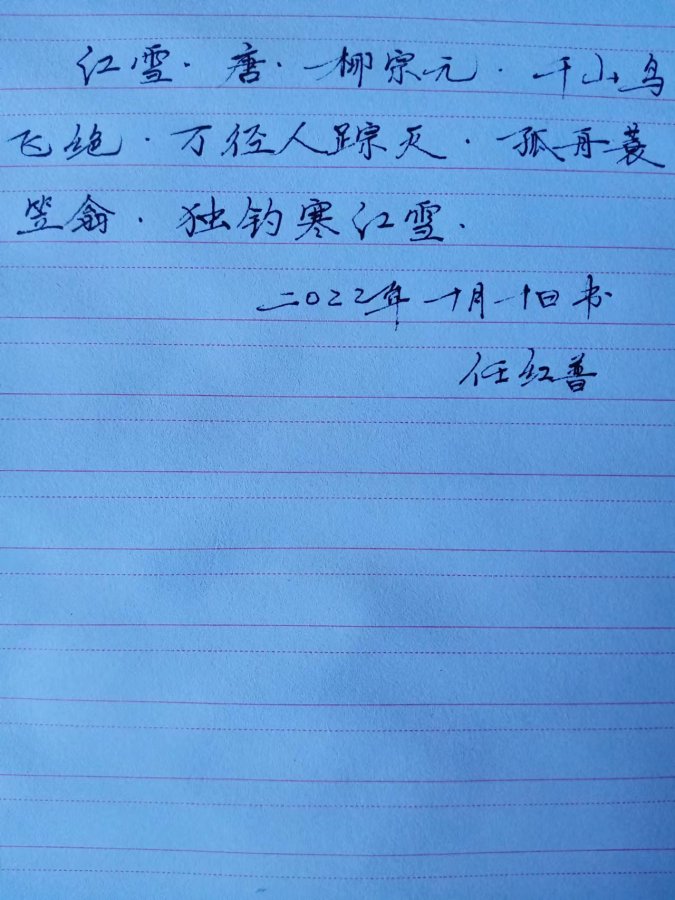 江雪·唐·柳宗元·千山鸟
飞绝·万径人踪灭·孤舟蓑
笠翁·独钓寒江雪.
二〇二二年十月十日书
任红普